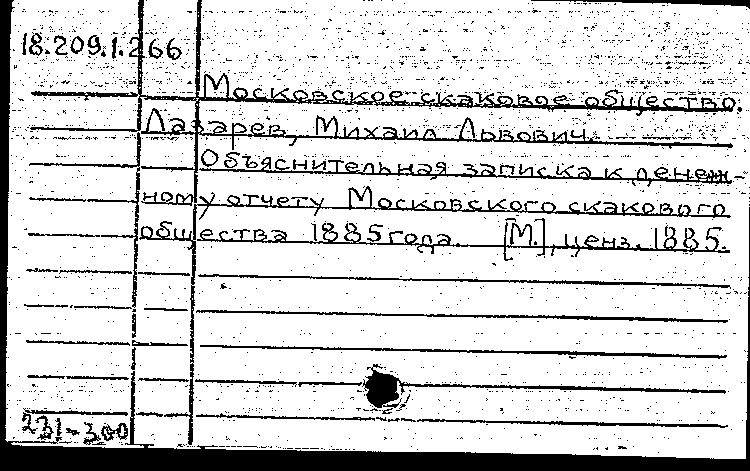 18.209.1.266
Московское скаковое общество.
Лазарев, Михаил Львович.
Объяснительная записка к денеж-
ному отчету Московского скакового
общества 1885 года. [М.], ценз. 1885.
231-300